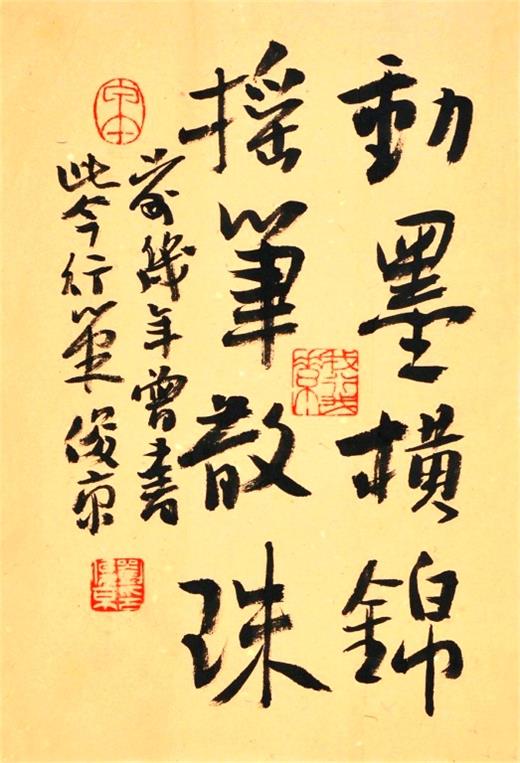 動墨橫錦
搖筆散珠
前幾年曾書
此今行筆俊京